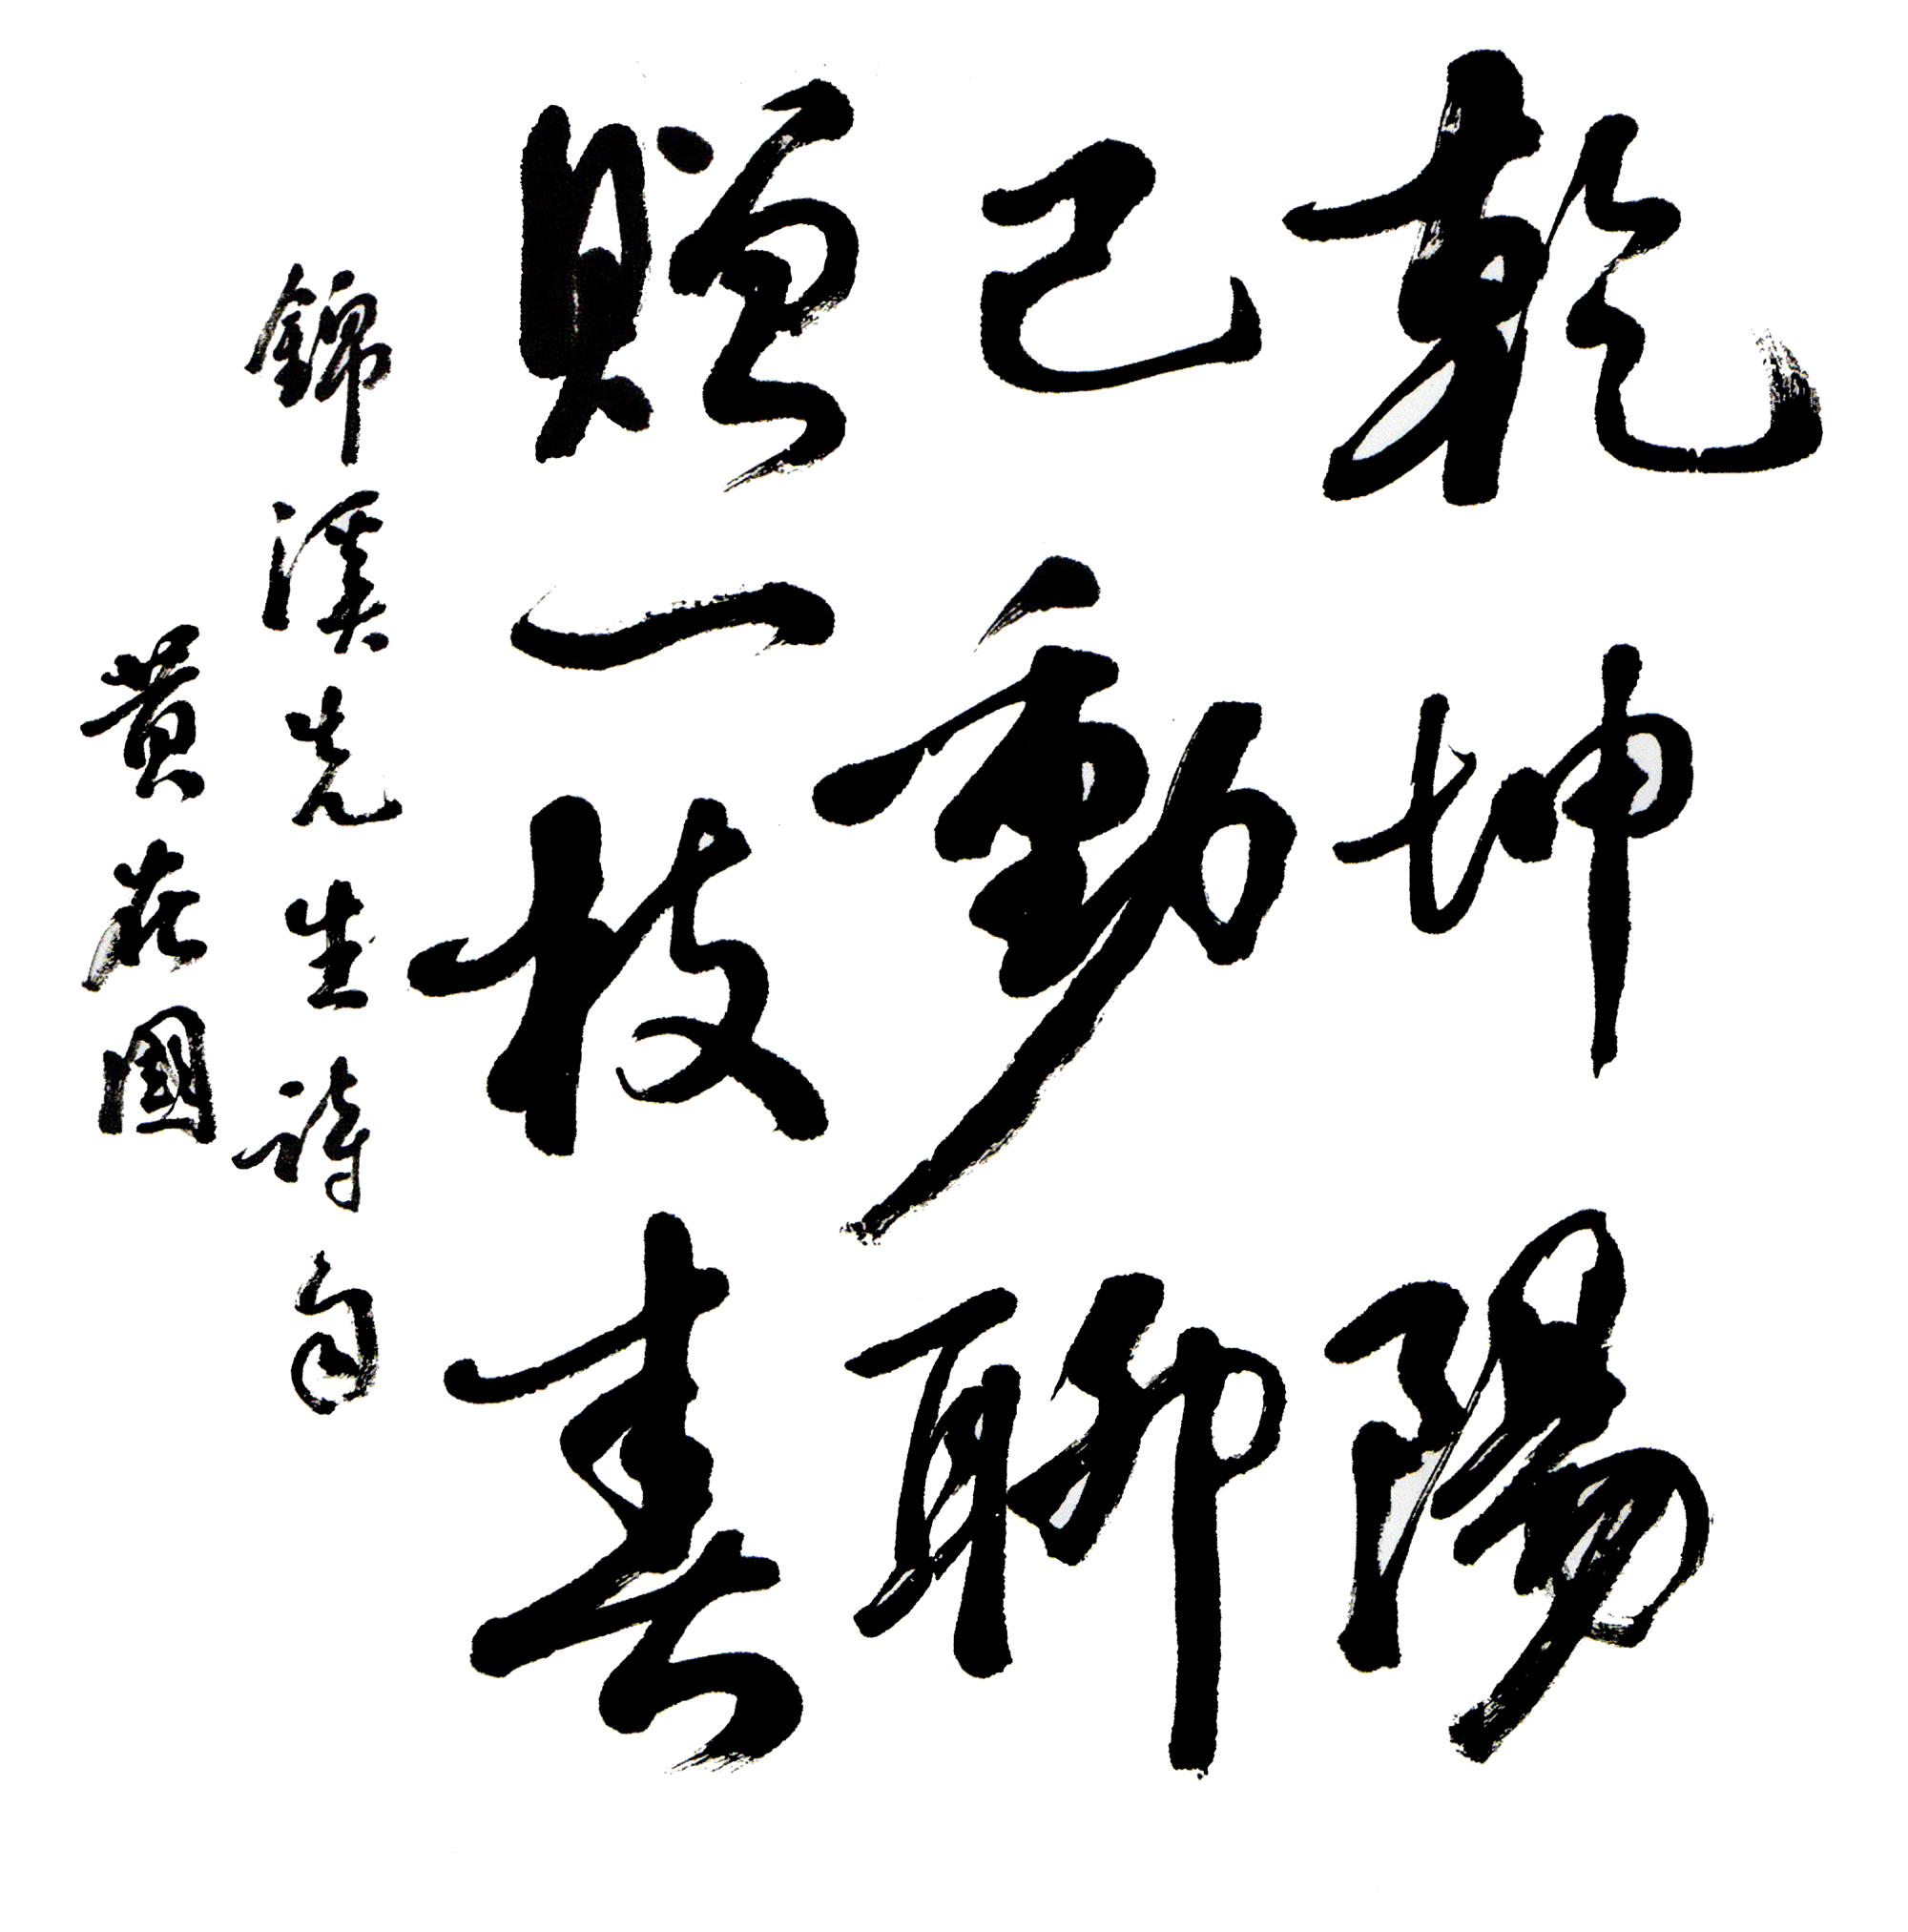 乾坤陽
已動聊
贈一枝春
錦溪先生詩句
黃國